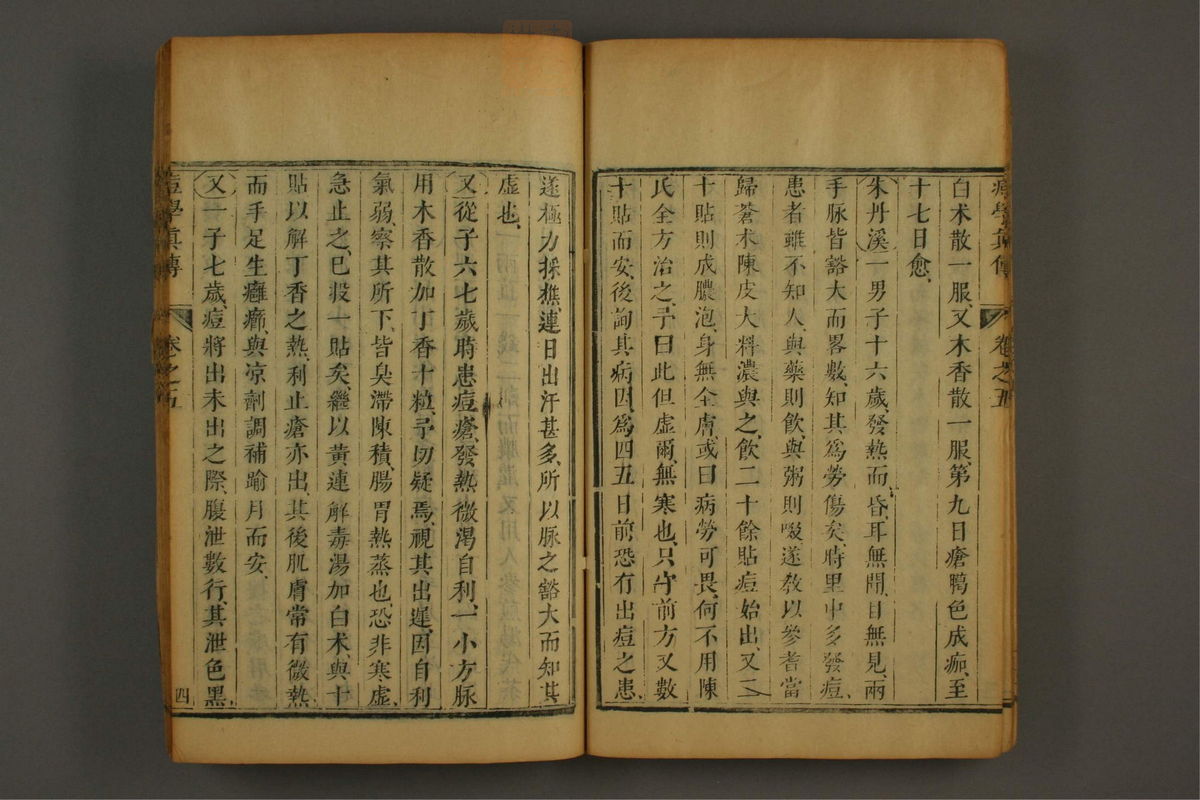 痘學眞傳 卷之五
白术散一服又木香散一服第九日瘡鴨色成痂至
十七日愈
朱丹溪一男子十六歲發熱而昏耳無聞目無見兩
手脉皆豁大而畧數知其爲勞傷矣時里中多發痘
患者雖不知人與藥則飲與粥則啜遂教以參耆當
歸蒼术陳皮大料濃與之飲二十餘貼痘始出又二
十貼則成膿泡身無全膚或曰病勞可畏何不用陳
氏全方治之予曰此但虛爾無寒也只守前方又數
十貼而安後詢其病因爲四五日前恐有出痘之患
遂極力採樵連日出汗甚多所以脉之豁大而知其
虛也
又從子六七歲時患痘瘡發熱微渴自利一小方脉
用木香散加丁香十粒予切疑焉視其出遲因自利
氣弱察其所下皆臭滯陳積腸胃熱蒸也恐非寒虛
急止之已投一貼矣繼以黃連解毒湯加白术與十
貼以解丁香之熱利止瘡亦出其後肌膚常有微熱
而手足生癰癤與凉劑調補踰月而安
又一子七歲痘將出未出之際腹泄數行其泄色黑
痘學眞傳 卷之五 四